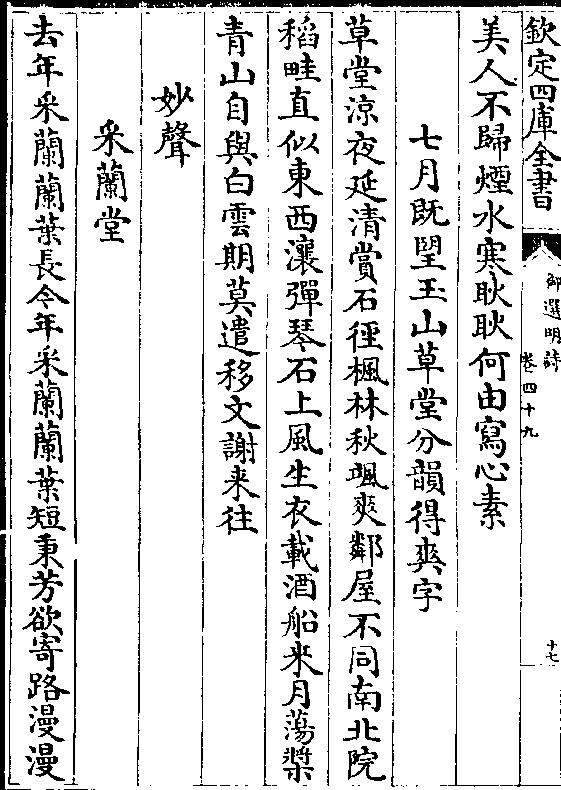 欽定四庫全書
御選明詩
卷四十九
十七
美人不歸煙水寒耿耿何由寫心素
七月既望玉山草堂分韻得爽字
草堂涼夜延清賞石徑楓林秋颯爽鄰屋不同南北院
稻畦直似東西瀼彈琴石上風生衣載酒船来月蕩槳
青山自與白雲期莫遣移文謝来往
妙聲
采蘭堂
去年采蘭蘭葉長今年采蘭蘭葉短秉芳欲寄路漫漫